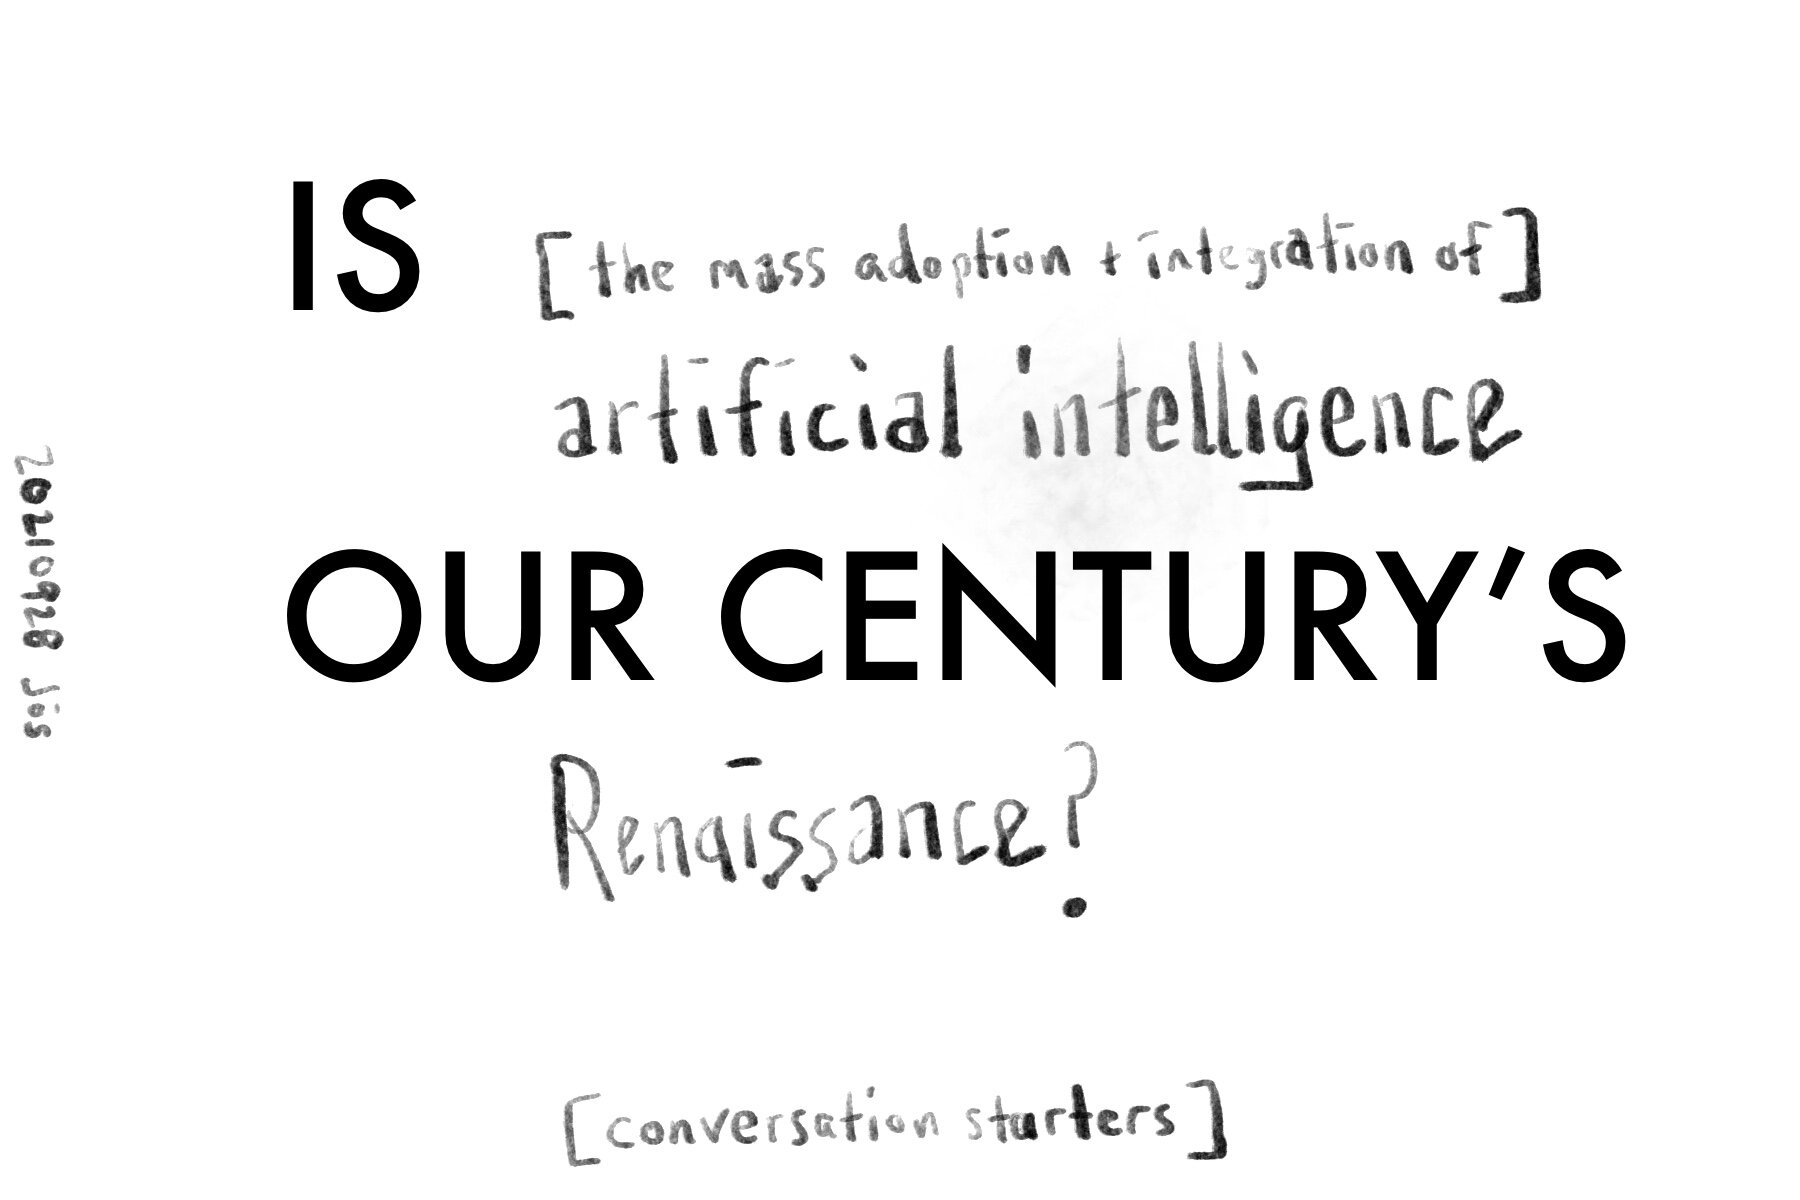 IS [the mass adoption + integration of]
artificial intelligence
OUR CENTURY’S
Renaissance?
[conversation starters]
20210928 Jos